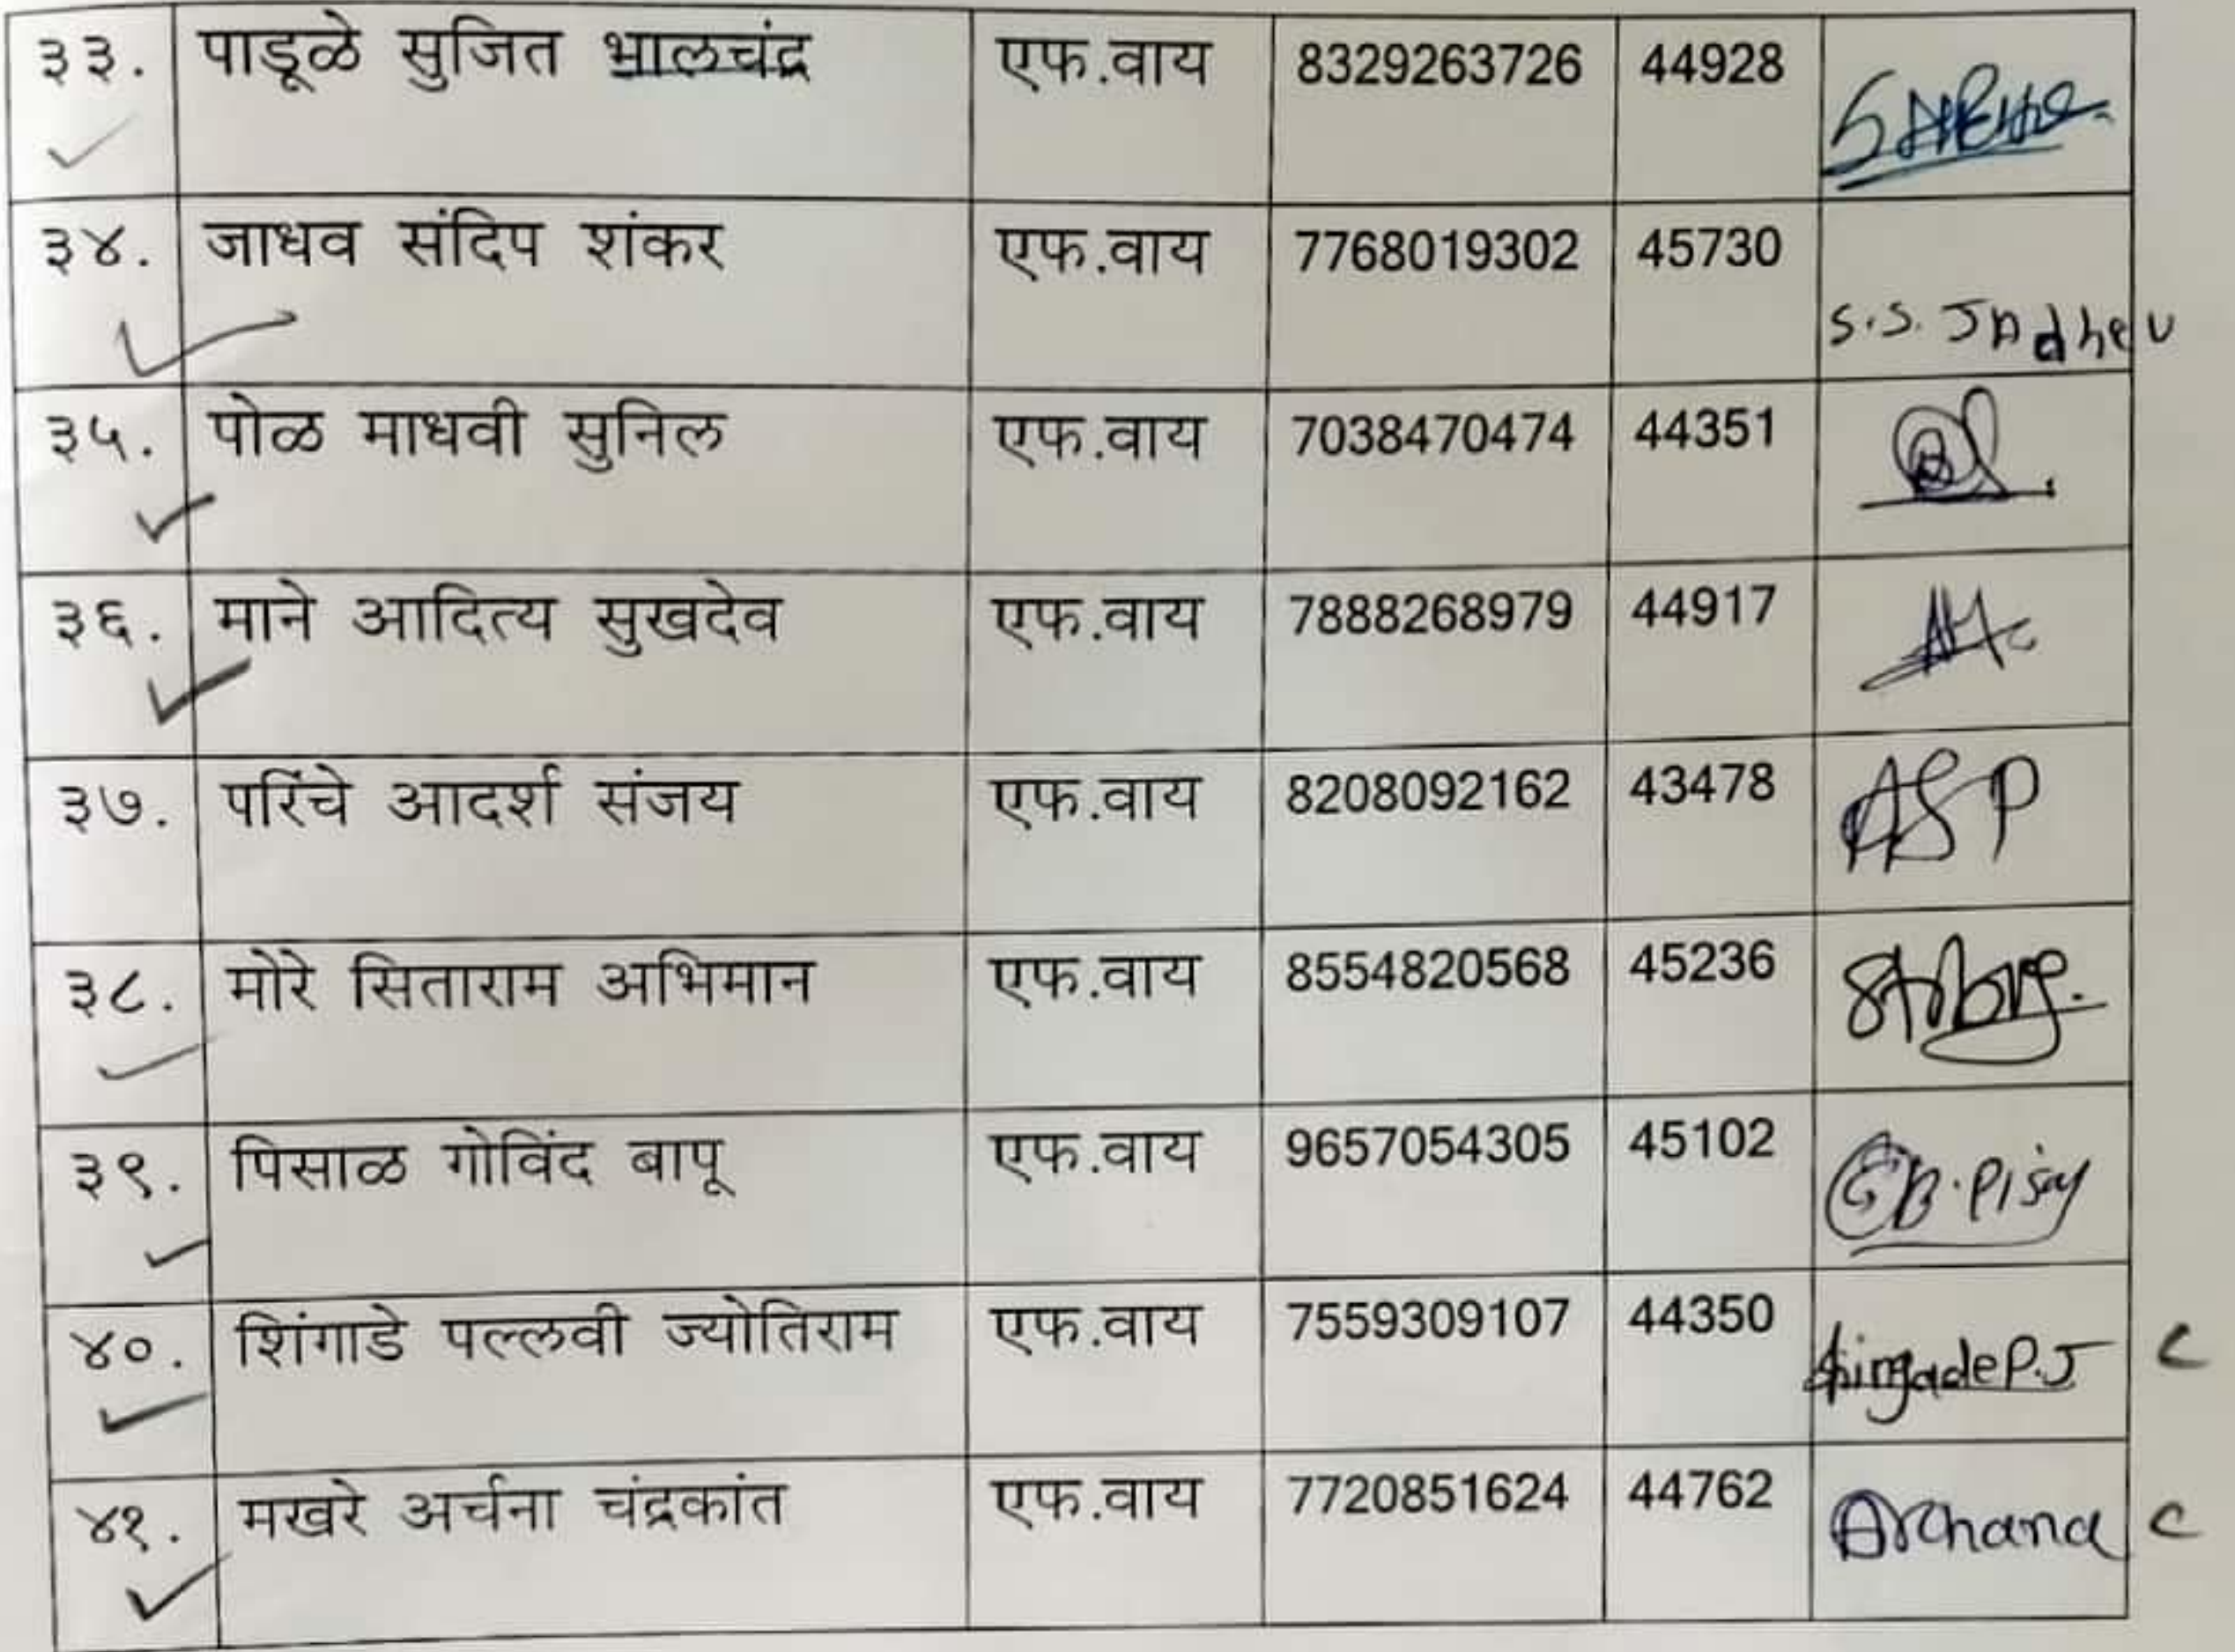 ३३. पाडूळे सुजित भालचंद्र एफ.वाय 8329263726 44928
३४. जाधव संदिप शंकर एफ.वाय 7768019302 45730 S.S. Jadhav
३५. पोळ माधवी सुनिल एफ.वाय 7038470474 44351
३६. माने आदित्य सुखदेव एफ.वाय 7888268979 44917
३७. परिंचे आदर्श संजय एफ.वाय 8208092162 43478 ASP
३८. मोरे सिताराम अभिमान एफ.वाय 8554820568 45236
३९. पिसाळ गोविंद बापू एफ.वाय 9657054305 45102
४०. शिंगाडे पल्लवी ज्योतिराम एफ.वाय 7559309107 44350 Shingade P.J C
४१. मखरे अर्चना चंद्रकांत एफ.वाय 7720851624 44762 Archana C